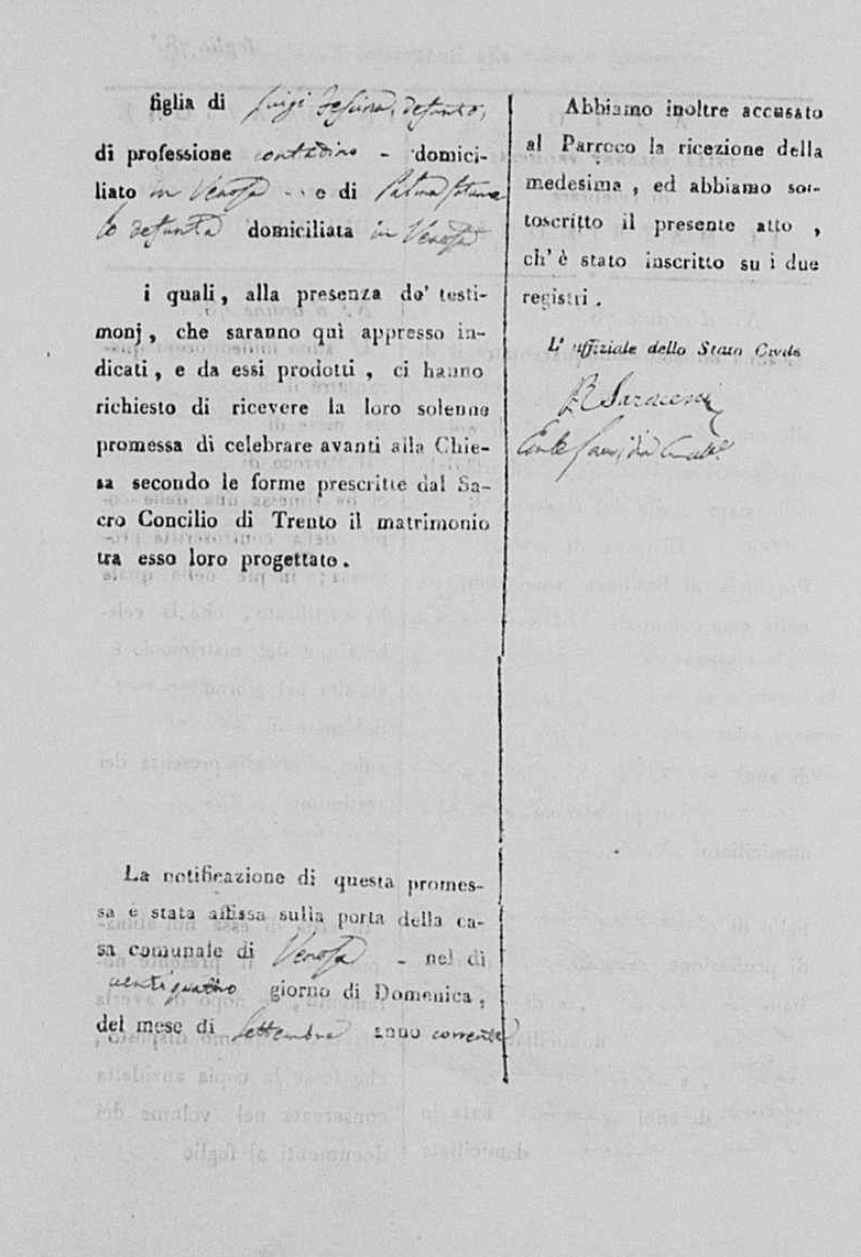 figlia di Luigi defunto,
di professione contadino - domici-
liato in Venosa - e di
defunta domiciliata in Venosa
i quali, alla presenza de' testi-
monj, che saranno quì appresso in-
dicati, e da essi prodotti, ci hanno
richiesto di ricevere la loro solenne
promessa di celebrare avanti alla Chie-
sa secondo le forme prescritte dal Sa-
cro Concilio di Trento il matrimonio
tra esso loro progettato.
La notificazione di questa promes-
sa è stata affissa sulla porta della ca-
sa comunale di Venosa - nel dì
ventiquattro giorno di Domenica,
del mese di Settembre anno corrente
Abbiamo inoltre accusato
al Parroco la ricezione della
medesima, ed abbiamo sot-
toscritto il presente atto,
ch' è stato inscritto su i due
registri.
L' uffiziale dello Stato Civile
Saraceni